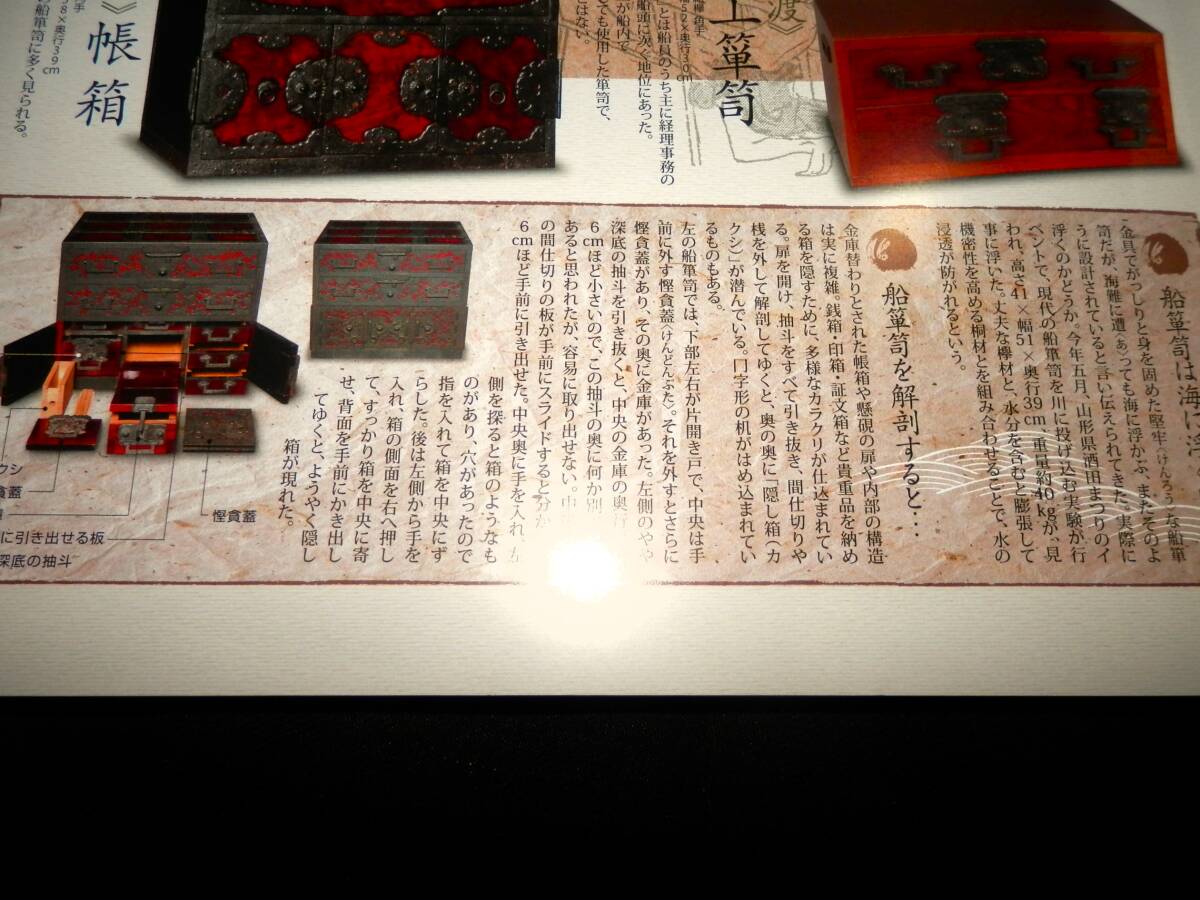 上簞笥
とは船員のうち主に経理事務の
船頭に次ぐ地位にあった。
が船内で
でも使用した箪笥で、
はない。
》帳箱
8×奥行39cm
の船箪笥に多く見られる。
船箪笥は海に浮
金具でがっしりと身を固めた堅牢〈けんろう〉な船箪
笥だが、海難に遭〈あ〉っても海に浮かぶ、またそのよ
うに設計されていると言い伝えられてきた。実際に
浮くのかどうか。今年五月、山形県酒田まつりのイ
ベントで、現代の船箪笥を川に投げ込む実験が行
われ、高さ41×幅51×奥行39cm、重量約40kgが、見
事に浮いた。丈夫な欅材と、水分を含むと膨張して
機密性を高める桐材とを組み合わせることで、水の
浸透が防がれるという。
船箪笥を解剖すると…
金庫替わりとされた帳箱や懸硯の扉や内部の構造
は実に複雑。銭箱・印箱・証文箱など貴重品を納め
る箱を隠すために、多様なカラクリが仕込まれてい
る。扉を開け、抽斗をすべて引き抜き、間仕切りや
桟を外して解剖してゆくと、奥の奥に「隠し箱〈カ
クシ〉」が潜んでいる。冂字形の机がはめ込まれてい
るものもある。
左の船箪笥では、下部左右が片開き戸で、中央は手
前に外す慳貪蓋〈けんどんぶた〉。それを外すとさらに
慳貪蓋があり、その奥に金庫があった。左側のやや
深底の抽斗を引き抜くと、中央の金庫の奥行
6cmほど小さいので、この抽斗の奥に何か別
あると思われたが、容易に取り出せない。中
の間仕切りの板が手前にスライドすると分か
6cmほど手前に引き出せた。中央奥に手を入れ、左
側を探ると箱のようなも
のがあり、穴があったので
指を入れて箱を中央にず
らした。後は左側から手を
入れ、箱の側面を右へ押し
て、すっかり箱を中央に寄
せ、背面を手前にかき出し
てゆくと、ようやく隠し
箱が現れた。
クシ
貪蓋
に引き出せる板
深底の抽斗
慳貪蓋